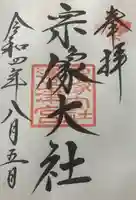 奉拝
宗像大社
令和四年八月五日